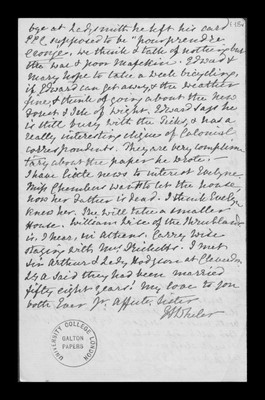 bye at Ladysmith he left his card
P.P.C. supposed to be "pour prendre
George". we think & talk of nothing but
the war & poor Mafeking. Edward &
Mary hope to take a week bicycling,
if Edward can get away & the weather
fine & think of going about the New
Forest & Isle of Wight. Edward says he
is still busy with the Dicky, & has a
really interesting clique of Colonial
correspondents. They are very complimen
tary about the paper he wrote. —
I have little news to interest Evelyne
Miss Chambers wants to let the house,
now her Father is dead. I think Evelyne
knew her. She will take a smaller
House. William Price of the Thrublands
is, I hear, in Athens. Carry, Wife
staying with Mrs Pricketts. I met
Sir Arthur & Lady Hodgson at Clavedon
Lady A said they had been married
fifty eight years! My love to you
both Ever Yr. Affecte. Sister
E Wheler
UNIVERSITY COLLEGE LONDON
GALTON
PAPERS